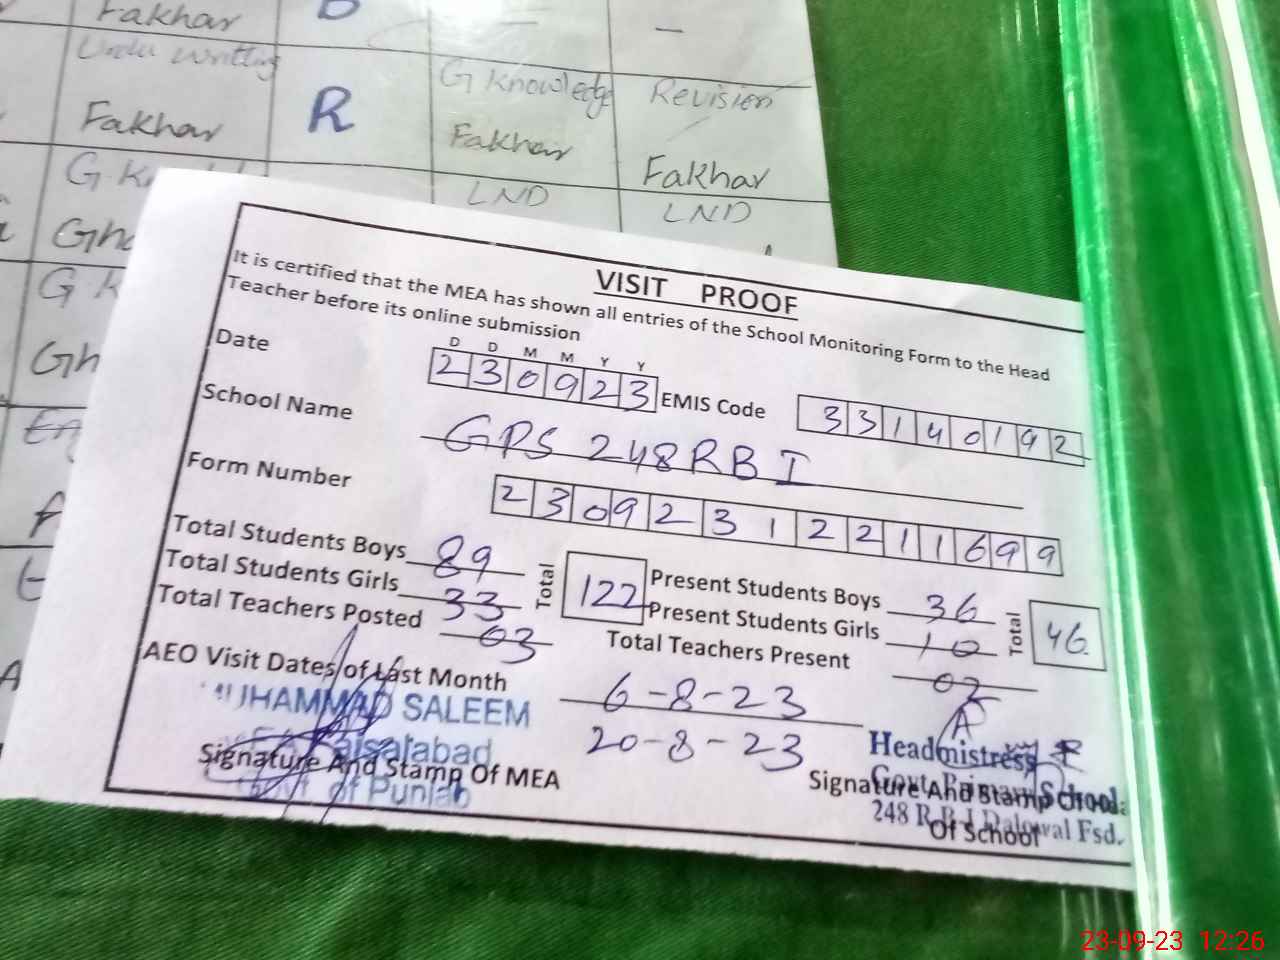 Fakhar
Urdu Writting
G Knowledge
Revision
Fakhar
R
Fakhar
Fakhar
LND
LND
VISIT PROOF
It is certified that the MEA has shown all entries of the School Monitoring Form to the Head
Teacher before its online submission
D D M M Y Y
Date 230923 EMIS Code 33140192
School Name GPS 248 RB I
Form Number 23092312211699
Total Students Boys 89 Total 122 Present Students Boys 36 Total 46
Total Students Girls 33 Present Students Girls 10
Total Teachers Posted 03 Total Teachers Present 02
AEO Visit Dates of Last Month 6-8-23
20-8-23
MUHAMMAD SALEEM
Faisalabad
Govt of Punjab
Signature And Stamp Of MEA
Headmistress
Govt. Primary School
248 R.B I Dalowal Fsd.
Signature And Stamp
Of School
23-09-23 12:26